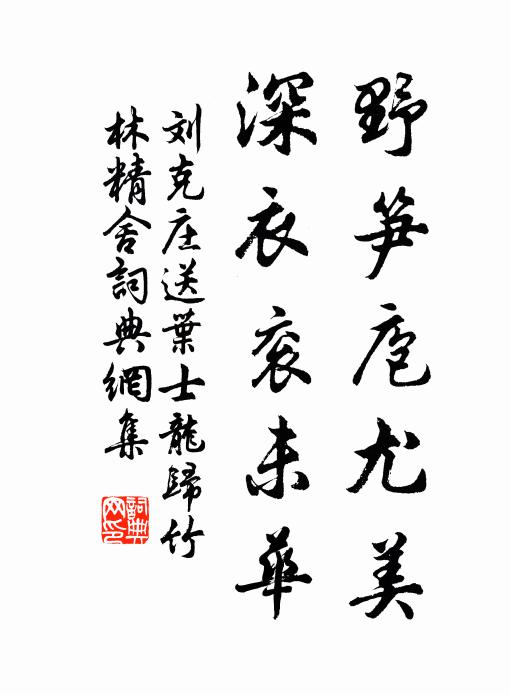 野笋庖尤美
深衣衮未華
刘克庄送葉士龍歸竹
林精舍詞典網集
詞典网印